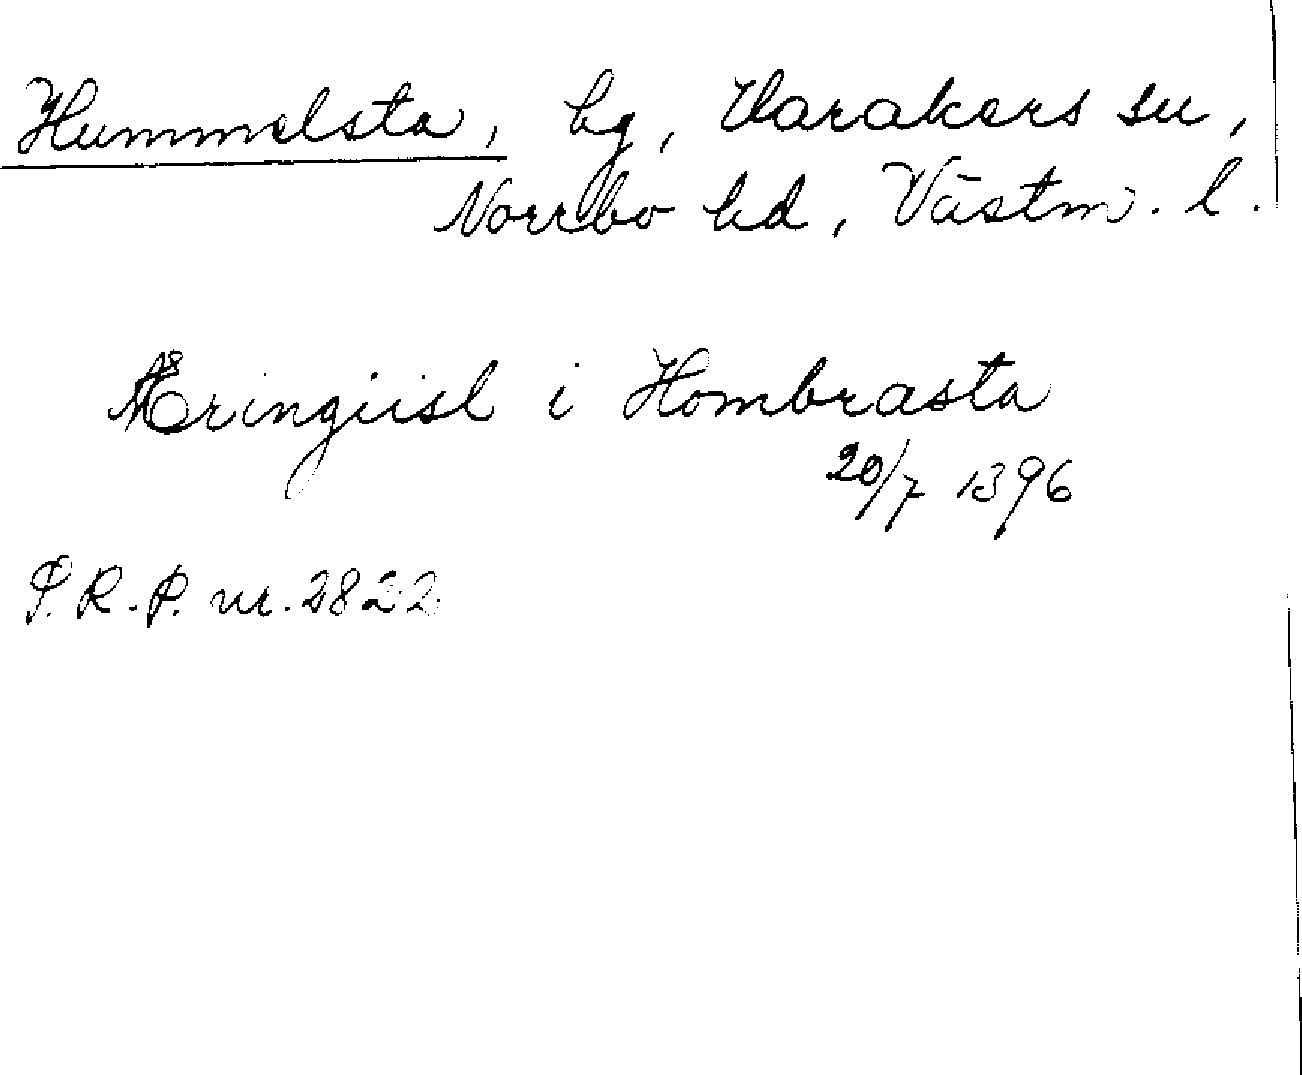 Hummelsta, by, Harakers sn,
Norrbo hd, Västm. l.
Æringiisl i Hombrasta
20/7 1396
S.R.P. nr. 2822